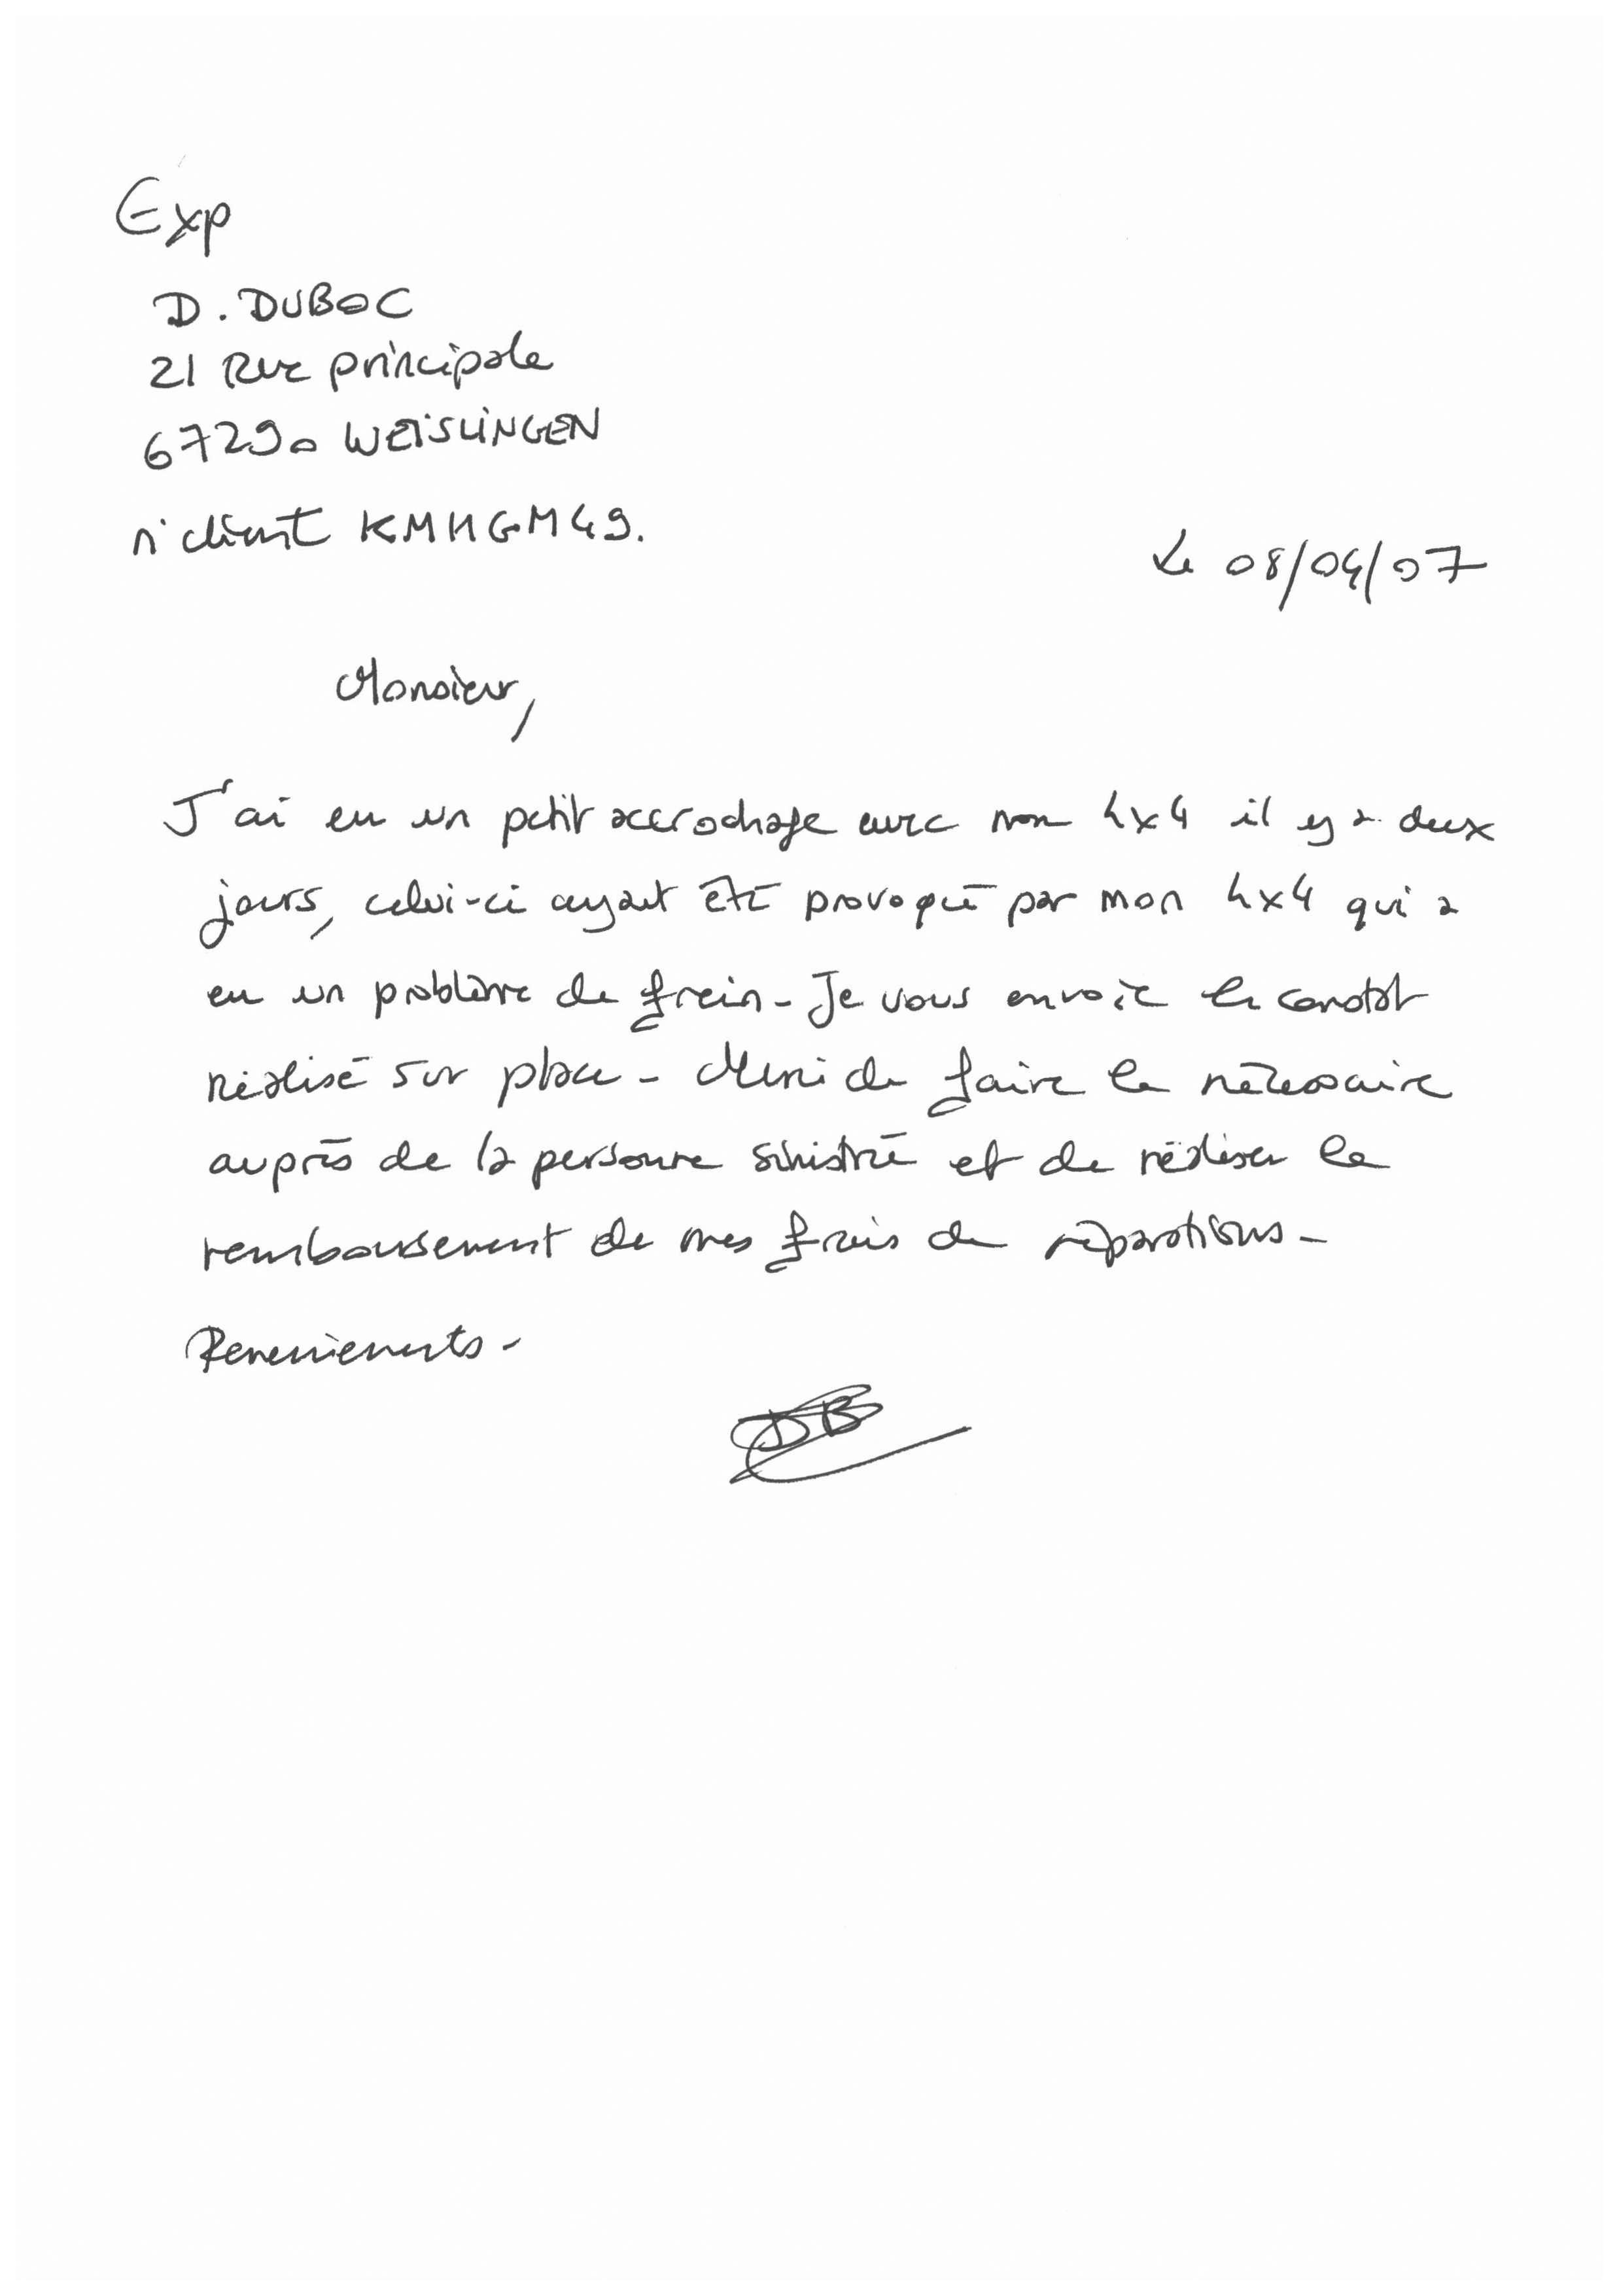 Exp
D. DUBOC
21 Rue principale
67290 WEISLINGEN
n° client KMHGM49.
Le 08/04/07
Monsieur,
J'ai eu un petit accrochage avec mon 4x4 il y a deux
jours, celui-ci ayant été provoqué par mon 4x4 qui a
eu un problème de frein - Je vous envoie le constat
réalisé sur place - Merci de faire le nécessaire
auprès de la personne sinistré et de réaliser le
remboursement de mes frais de réparations -
Remerciements -
DB